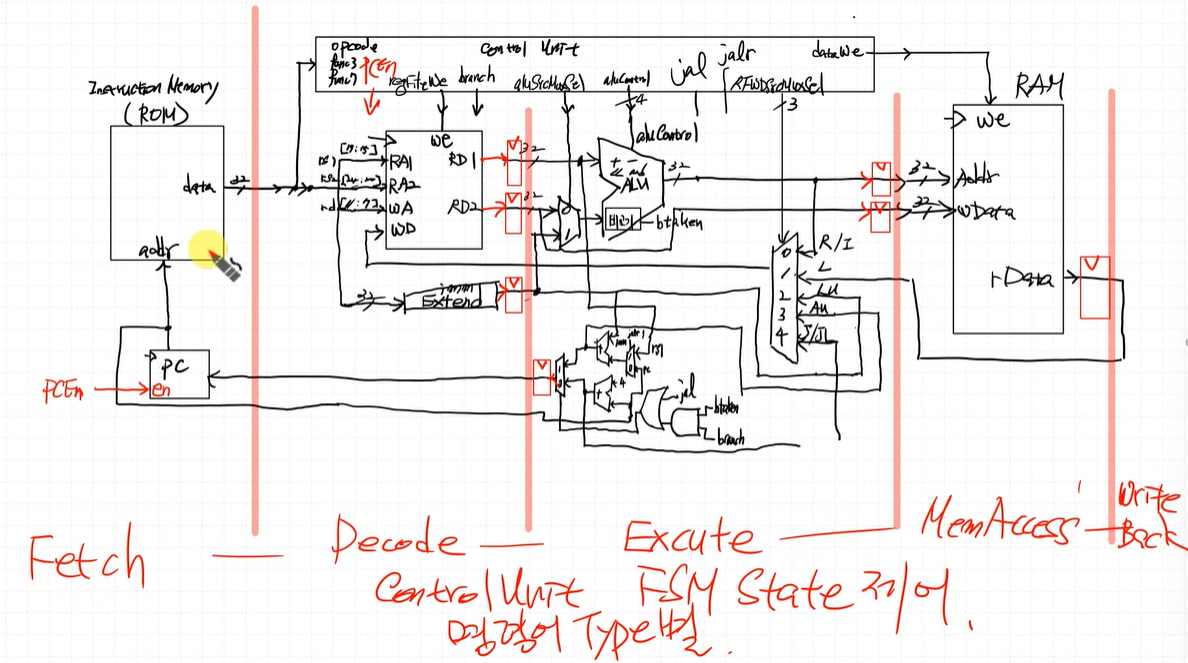 opcode
func3
func7
Control Unit
PCEn
regFileWe
branch
aluSrcMuxSel
aluControl
4
jal
jalr
RFWDSrcMuxSel
3
dataWe
Instruction Memory
(ROM)
data
addr
32
we
RA1
RA2
WA
WD
RD1
RD2
32
32
32
Extend
0
1
aluControl
ALU
비교기
btaken
32
RAM
we
Addr
wData
rData
32
32
0
1
2
3
4
R/I
L
LU
AU
J/JL
PC
en
PCEn
4
jal
btaken
branch
Fetch
Decode
Excute
MemAccess
Write
Back
Control Unit FSM State 제어
명령어 Type별.